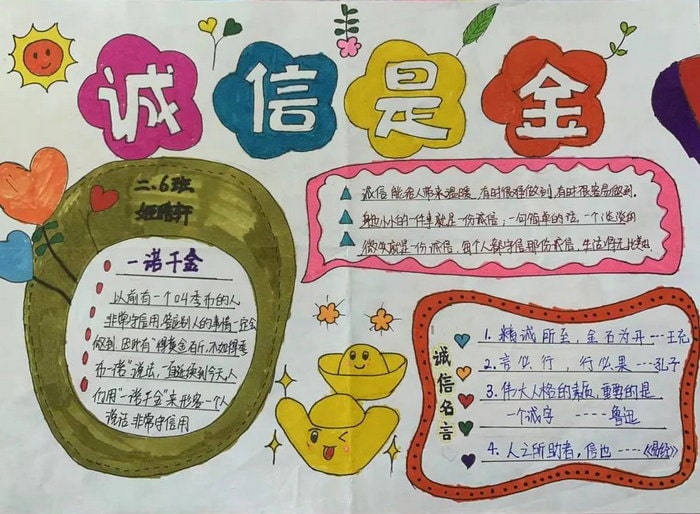 诚信是金
二.6班
一诺千金
以前有一个叫季布的人
非常守信用.答应别人的事情一定会
做到.因此有"得黄金百斤,不如得季
布一诺"说法,一直延续到今天.人
们用"一诺千金"来形容一个人
说话非常守信用
诚信能给人带来温暖.有时很难做到.有时很容易做到.
身边小小的一件事就是一份诚信;一句简单的话.一个淡淡的
微笑就是一份诚信.每个人都守信那份诚信.生活将无比
诚信名言
1. 精诚所至,金石为开---王充
2. 言必行,行必果---孔子
3. 伟大人格的素质,重要的是
一个诚字 -----鲁迅
4. 人之所助者,信也----《易经》